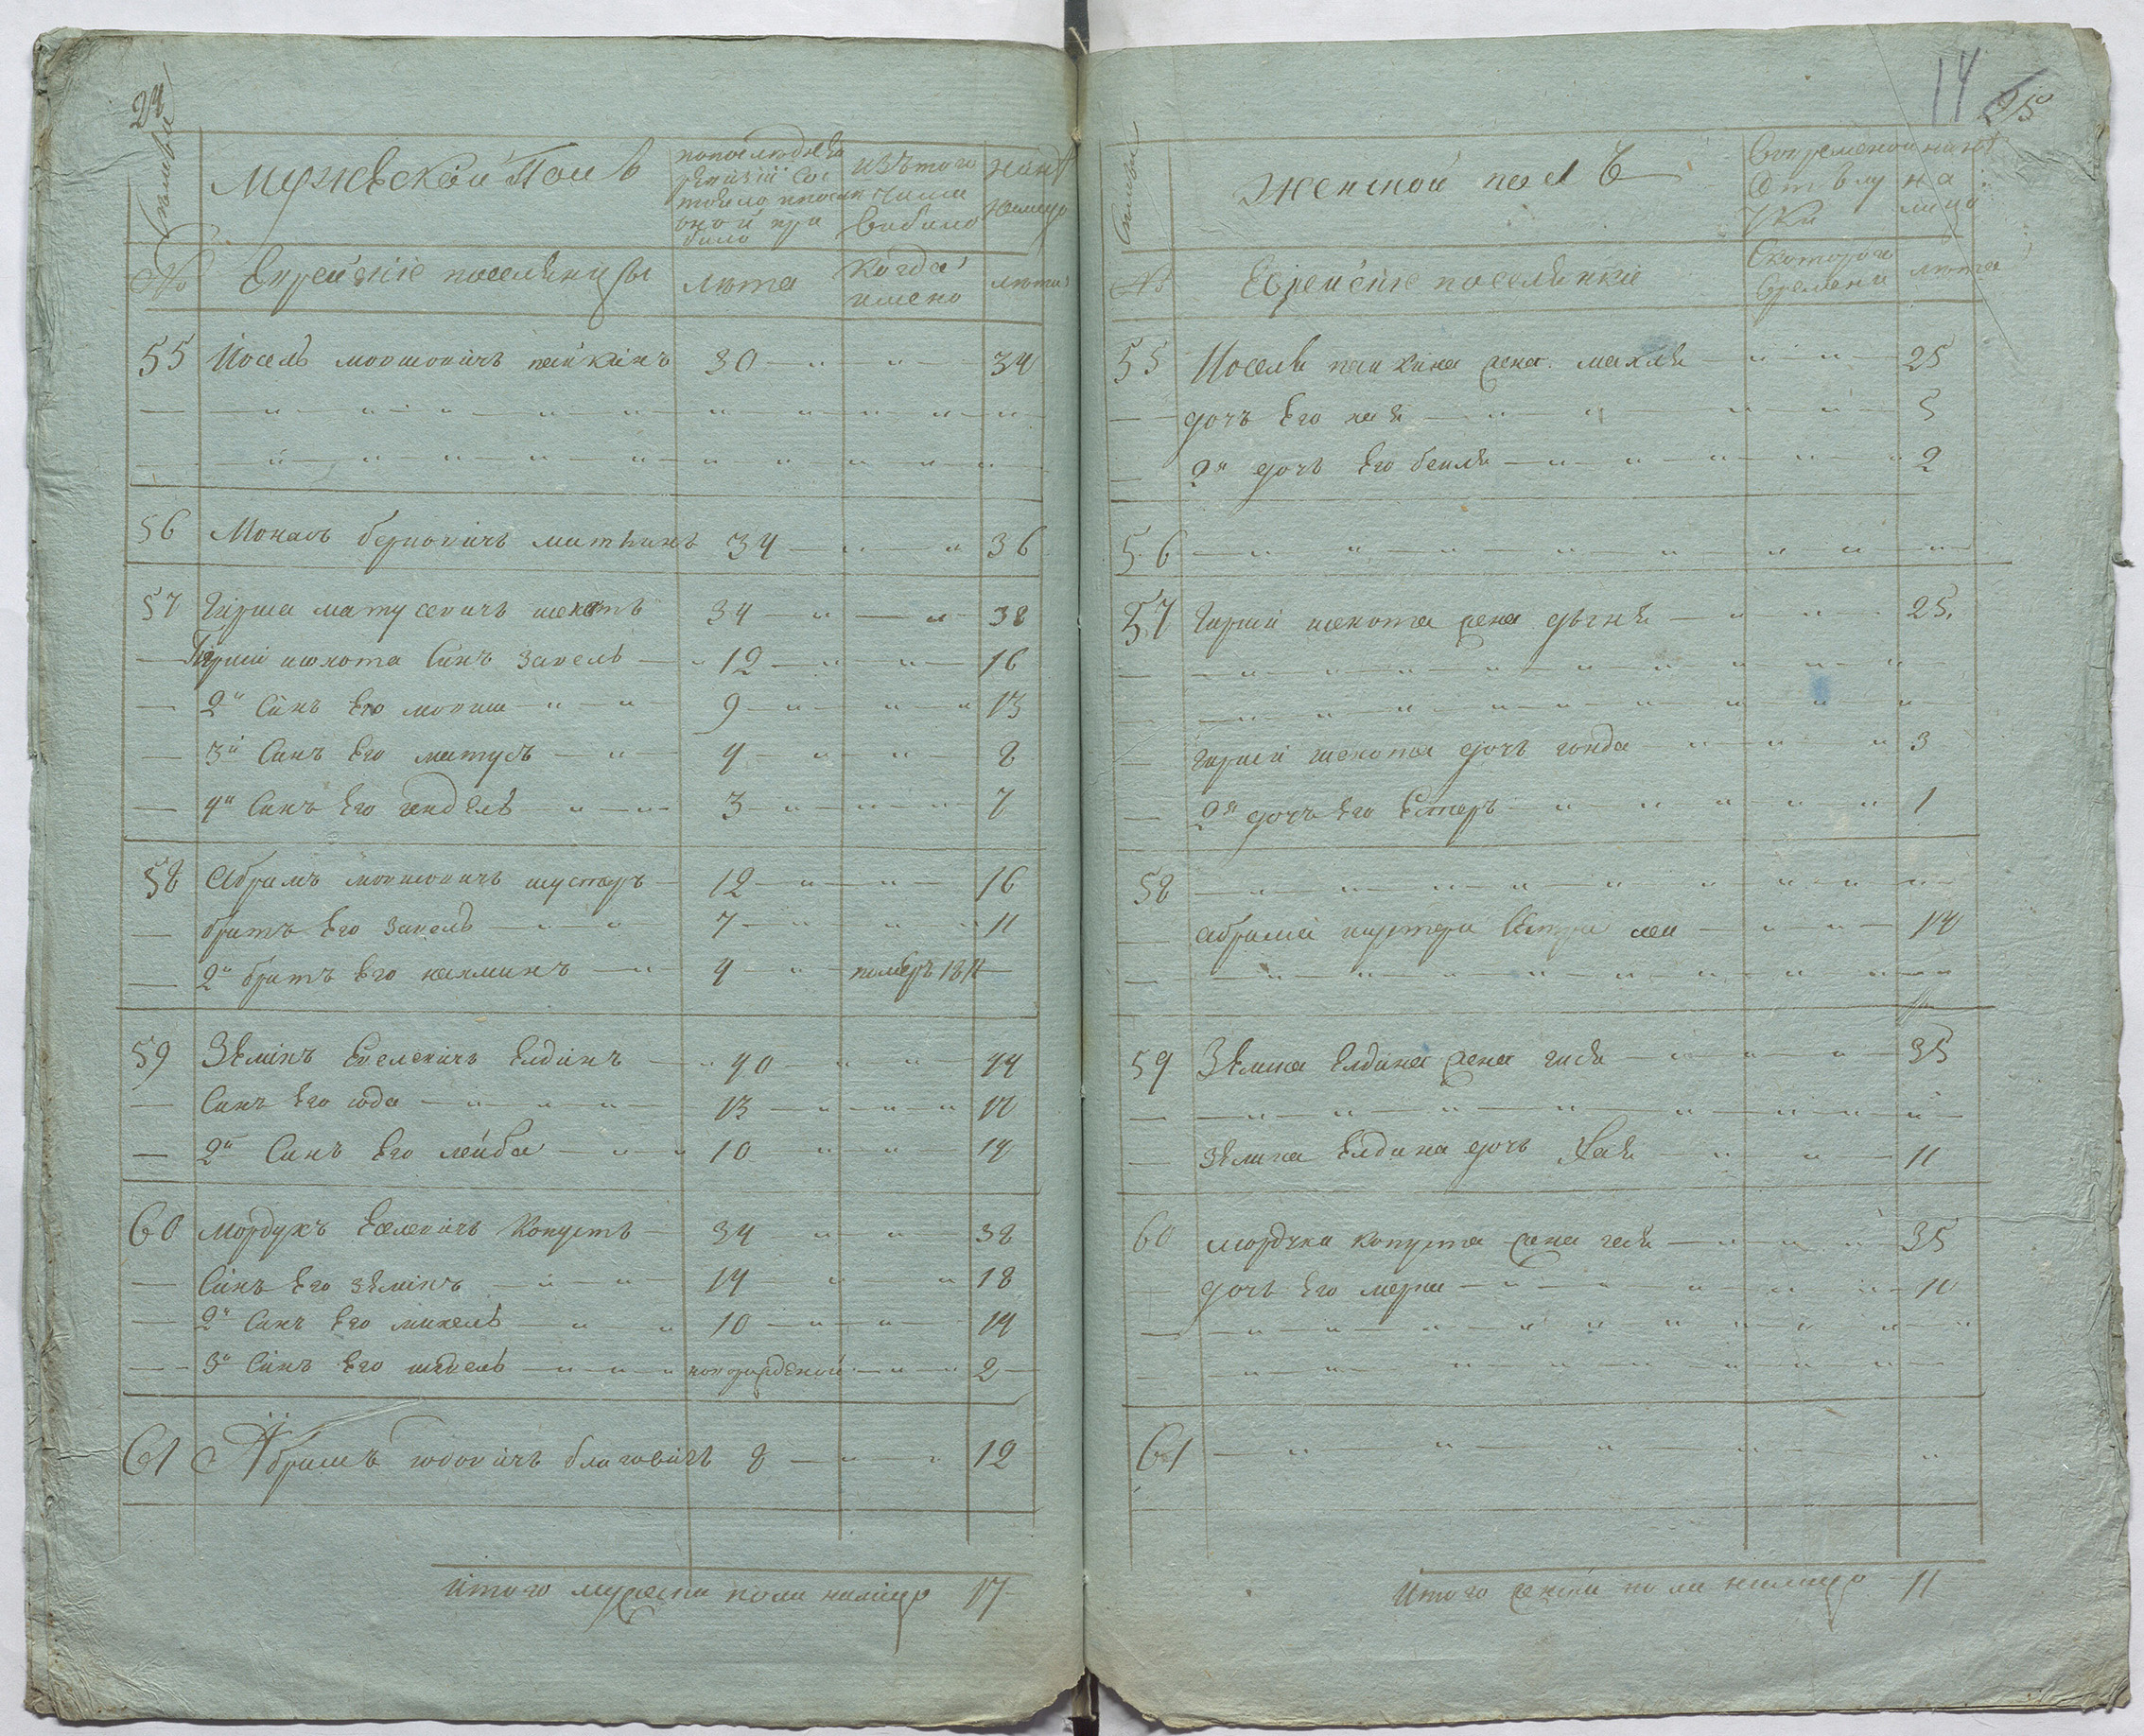 24
Фамилии
Мужеской Полъ
по последней
ревизіи сос
тояло и после
оной при
было
изъ того
числа
выбыло
ныне
налицо
№
Еврейскіе поселянцы
лета
когда
имено
лета
55 Иосель мовшовичъ пайкинъ 30 — " — " — 34
56 Монась берковичъ миткинъ 34 — " — " 36
57 Гирша матусевичъ шекотъ 34 — " — " — 38
— Гирши шекота Синъ Завель — " 12 — " — " — 16
— 2й Синъ Его мовша — " — " — 9 — " — " — " 13
— 3й Синъ Его матусъ — " — 4 — " — " — 8
— 4й Синъ Его гендель — " — " — 3 — " — " — " 7
58 Абрамъ мовшовичъ шустеръ — 12 — " — " — 16
— братъ Его Завель — " — " 7 — " — " — " 11
— 2й братъ Его нахминъ — " — 4 — " — померъ 1811 —
59 Зѣликъ Евелевичъ Елдинъ — " 40 — " — " 44
— Синъ Его юда — " — " — " — 13 — " — " — " 17
— 2й Синъ Его лейба — " — " 10 — " — " — 14
60 мордухъ Евелевичъ Копустъ — 34 — " — " — 38
— Синъ Его зѣликъ — " — " — 14 — " — " 18
— 2й Синъ Его михель — " — " 10 — " — " — 14
— 3й Синъ Его — " — " — " новорожденой — " — " 2 —
61 Абрамъ юдовичъ благовичъ 8 — " — " 12
Итого мужеска пола налицо 17
14
25
Фамилии
Женской полъ
во временой
отлу
чки
ныне
на
лицо
№
Еврейскіе поселянки
Скоторого
времени
лета
55 Иосели пайкина жена махля — " — " — 25
— дочъ Его хая — " — " — " — " — 5
— 2я дочъ Его бейля — " — " — " — " — " 2
56 — " — " — " — " — " — " — " — "
57 Гирши шекота жена двгня — " — " — 25.
— Гирши шекота дочъ гонда — " — " — " 3
— 2я дочъ Его Естеръ — " — " — " — " — " 1
58 — " — " — " — " — " — " — " — "
— абрами шустера Сестра лея — " — " — 14
59 Зѣлика Елдина жена гися — " — " — " — 35
— зѣлика Елдина дочъ Хая — " — " — 11
60 мордука копуста жена гася — " — " — " — 35
— дочъ Его мера — " — " — " — " — " — 10
61 — " — " — " — " — "
Итого женска пола налицо 11